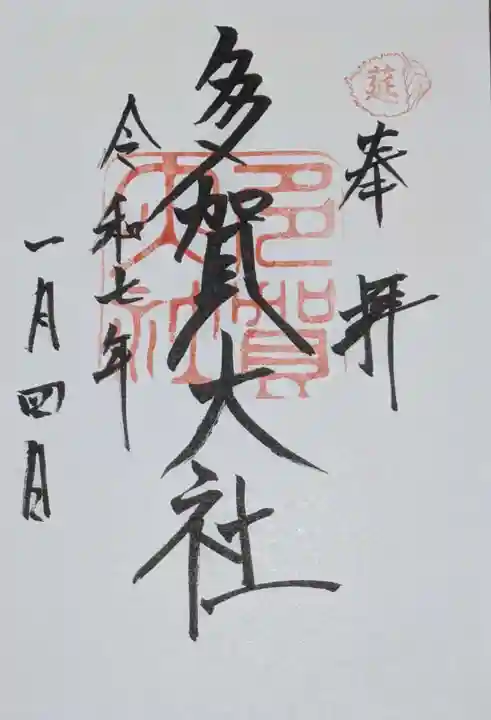 莚
奉拝
多賀大社
多賀大社
令和七年
一月四日